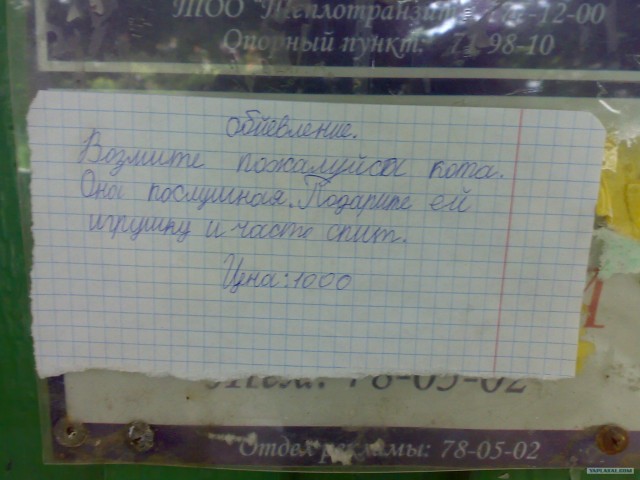 ТОО "Теплотранзит" 74-12-00
Опорный пункт: 71-98-10
Обйевление.
Возмите пожалуйста кота.
Она послушная. Подарите ей
игрушку и часто спит.
Цена: 1000
78-05-02
Отдел рекламы: 78-05-02
YAPLAKAL.COM